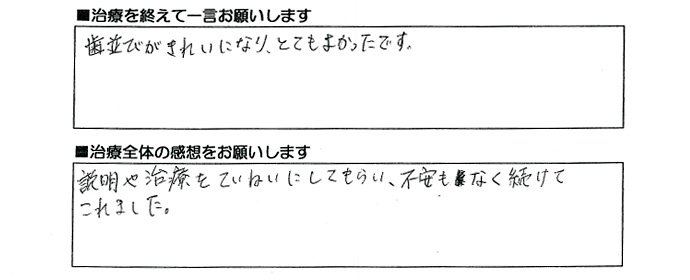 ■治療を終えて一言お願いします
歯並びがきれいになり、とてもよかったです。
■治療全体の感想をお願いします
説明や治療をていねいにしてもらい、不安もなく続けて
これました。